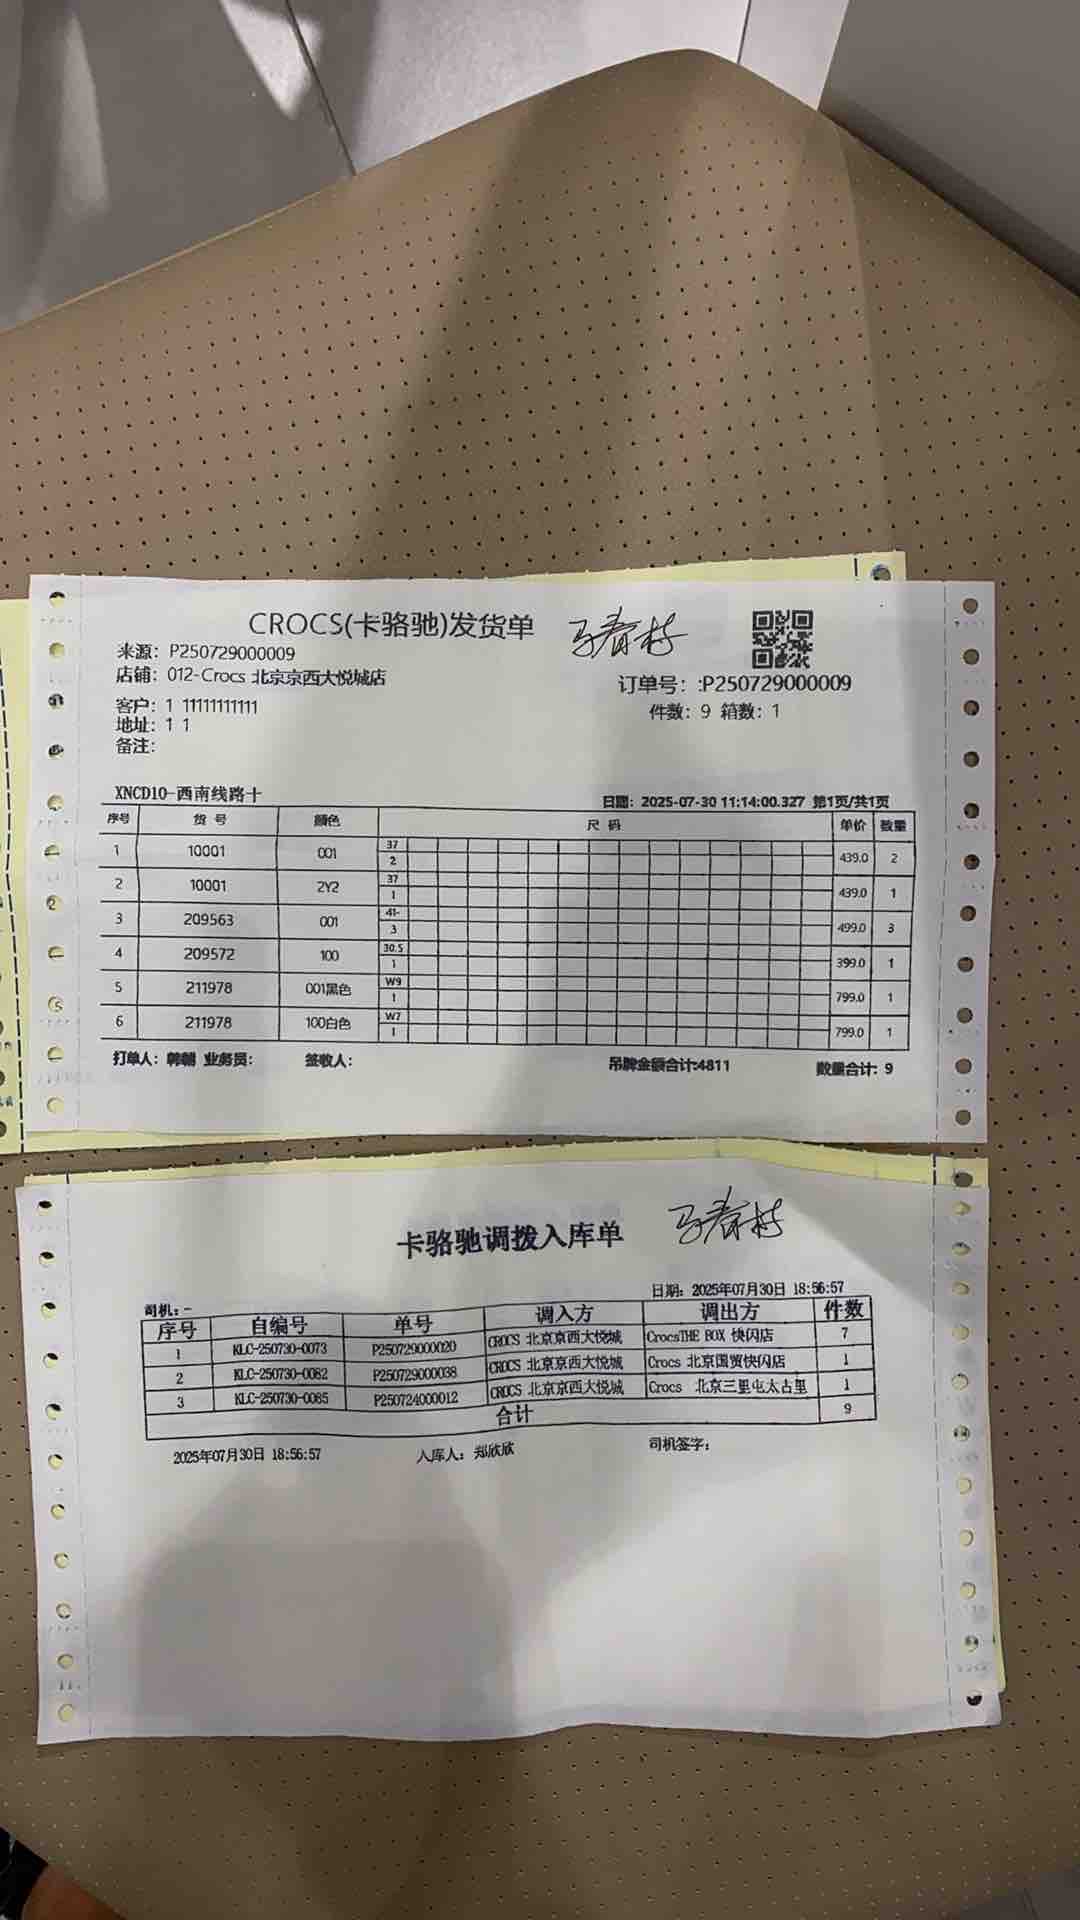 CROCS(卡骆驰)发货单 马春村
来源: P250729000009
店铺: 012-Crocs 北京京西大悦城店
订单号: :P250729000009
客户: 1 11111111111
件数: 9 箱数: 1
地址: 1 1
备注:
XNCD10-西南线路十
日期: 2025-07-30 11:14:00.327 第1页/共1页
序号 货 号 颜色 尺 码 单价 数量
1 10001 001 37 2 439.0 2
2 10001 2Y2 37 1 439.0 1
3 209563 001 41- 3 499.0 3
4 209572 100 30.5 1 399.0 1
5 211978 001黑色 W9 1 799.0 1
6 211978 100白色 W7 1 799.0 1
打单人: 韩朝 业务员: 签收人: 吊牌金额合计:4811 数量合计: 9
卡骆驰调拨入库单 马春村
日期: 2025年07月30日 18:56:57
司机: -
序号 自编号 单号 调入方 调出方 件数
1 KLC-250730-0073 P250729000020 CROCS 北京京西大悦城 CrocsTHE BOX 快闪店 7
2 KLC-250730-0082 P250729000038 CROCS 北京京西大悦城 Crocs 北京国贸快闪店 1
3 KLC-250730-0085 P250724000012 CROCS 北京京西大悦城 Crocs 北京三里屯太古里 1
合计 9
2025年07月30日 18:56:57 入库人: 郑欣欣 司机签字: